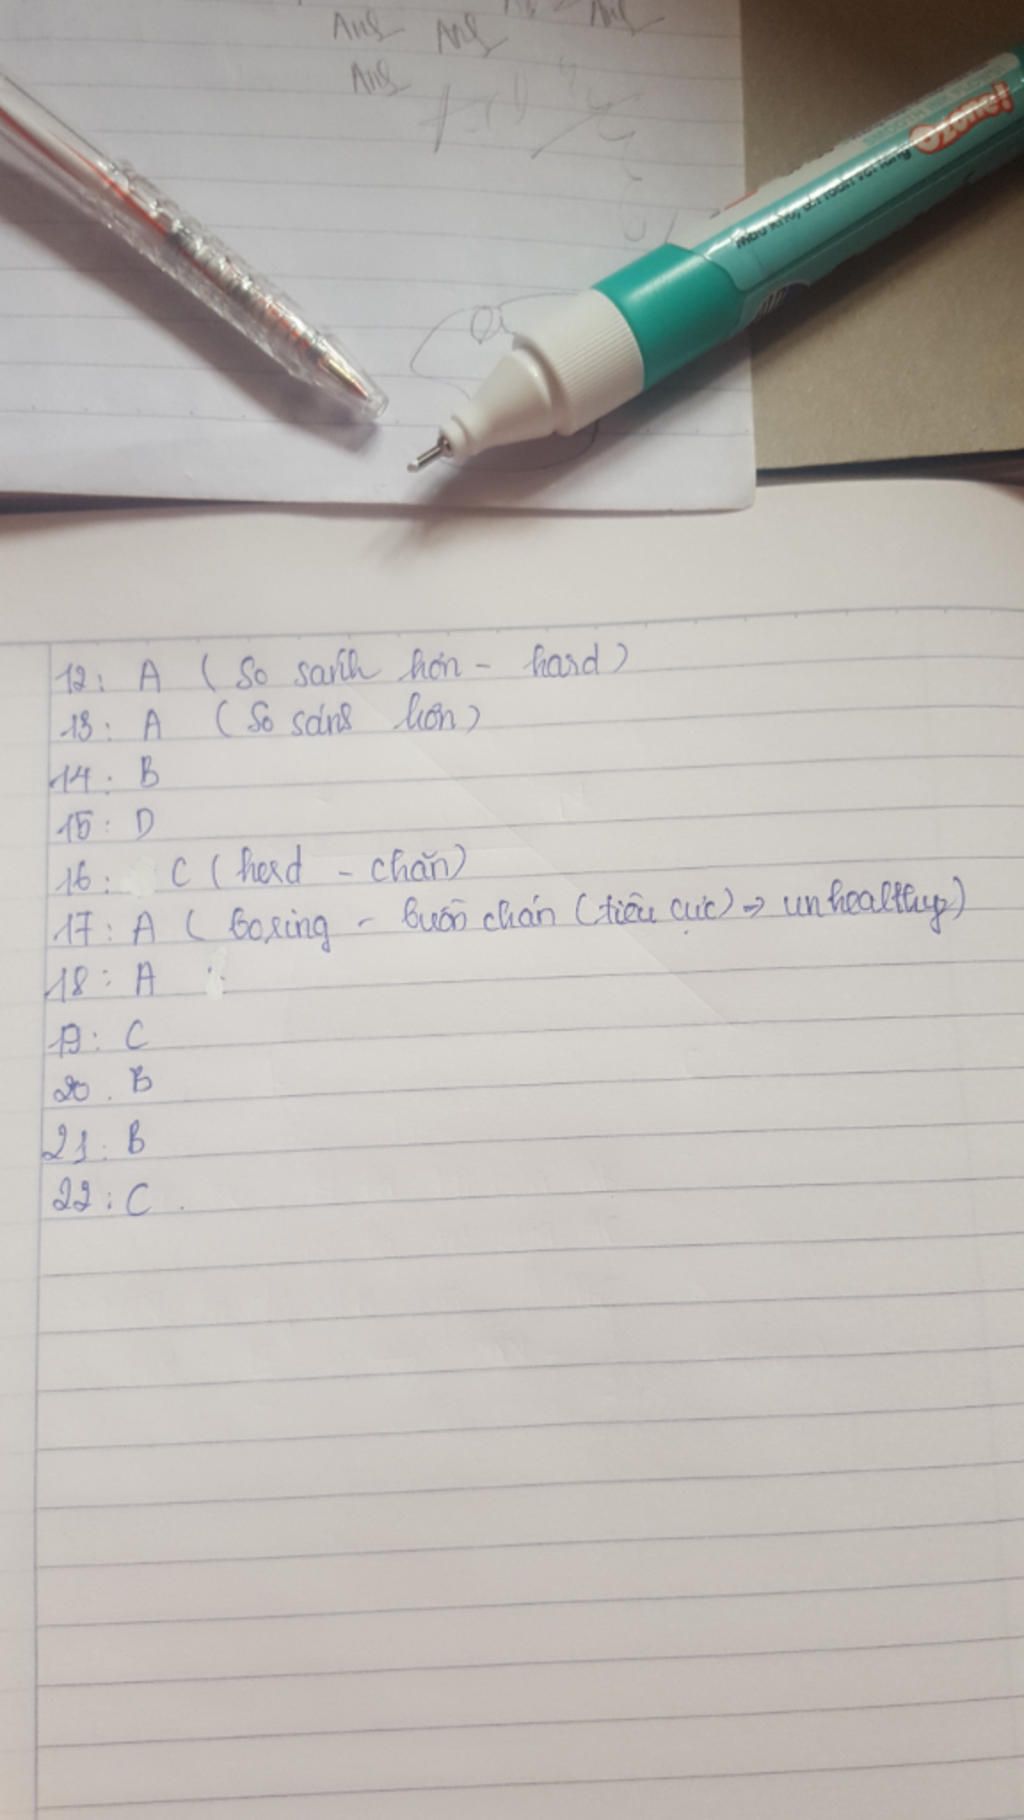 Ans Ans Ans
Ans
Ozone!
12: A (So sánh hơn - hard)
13: A (So sáns hơn)
14: B
15: D
16: C (herd - chăn)
17: A (boring - buồn chán (tiêu cực) → unhealthy)
18: A
19: C
20. B
21: B
22: C.